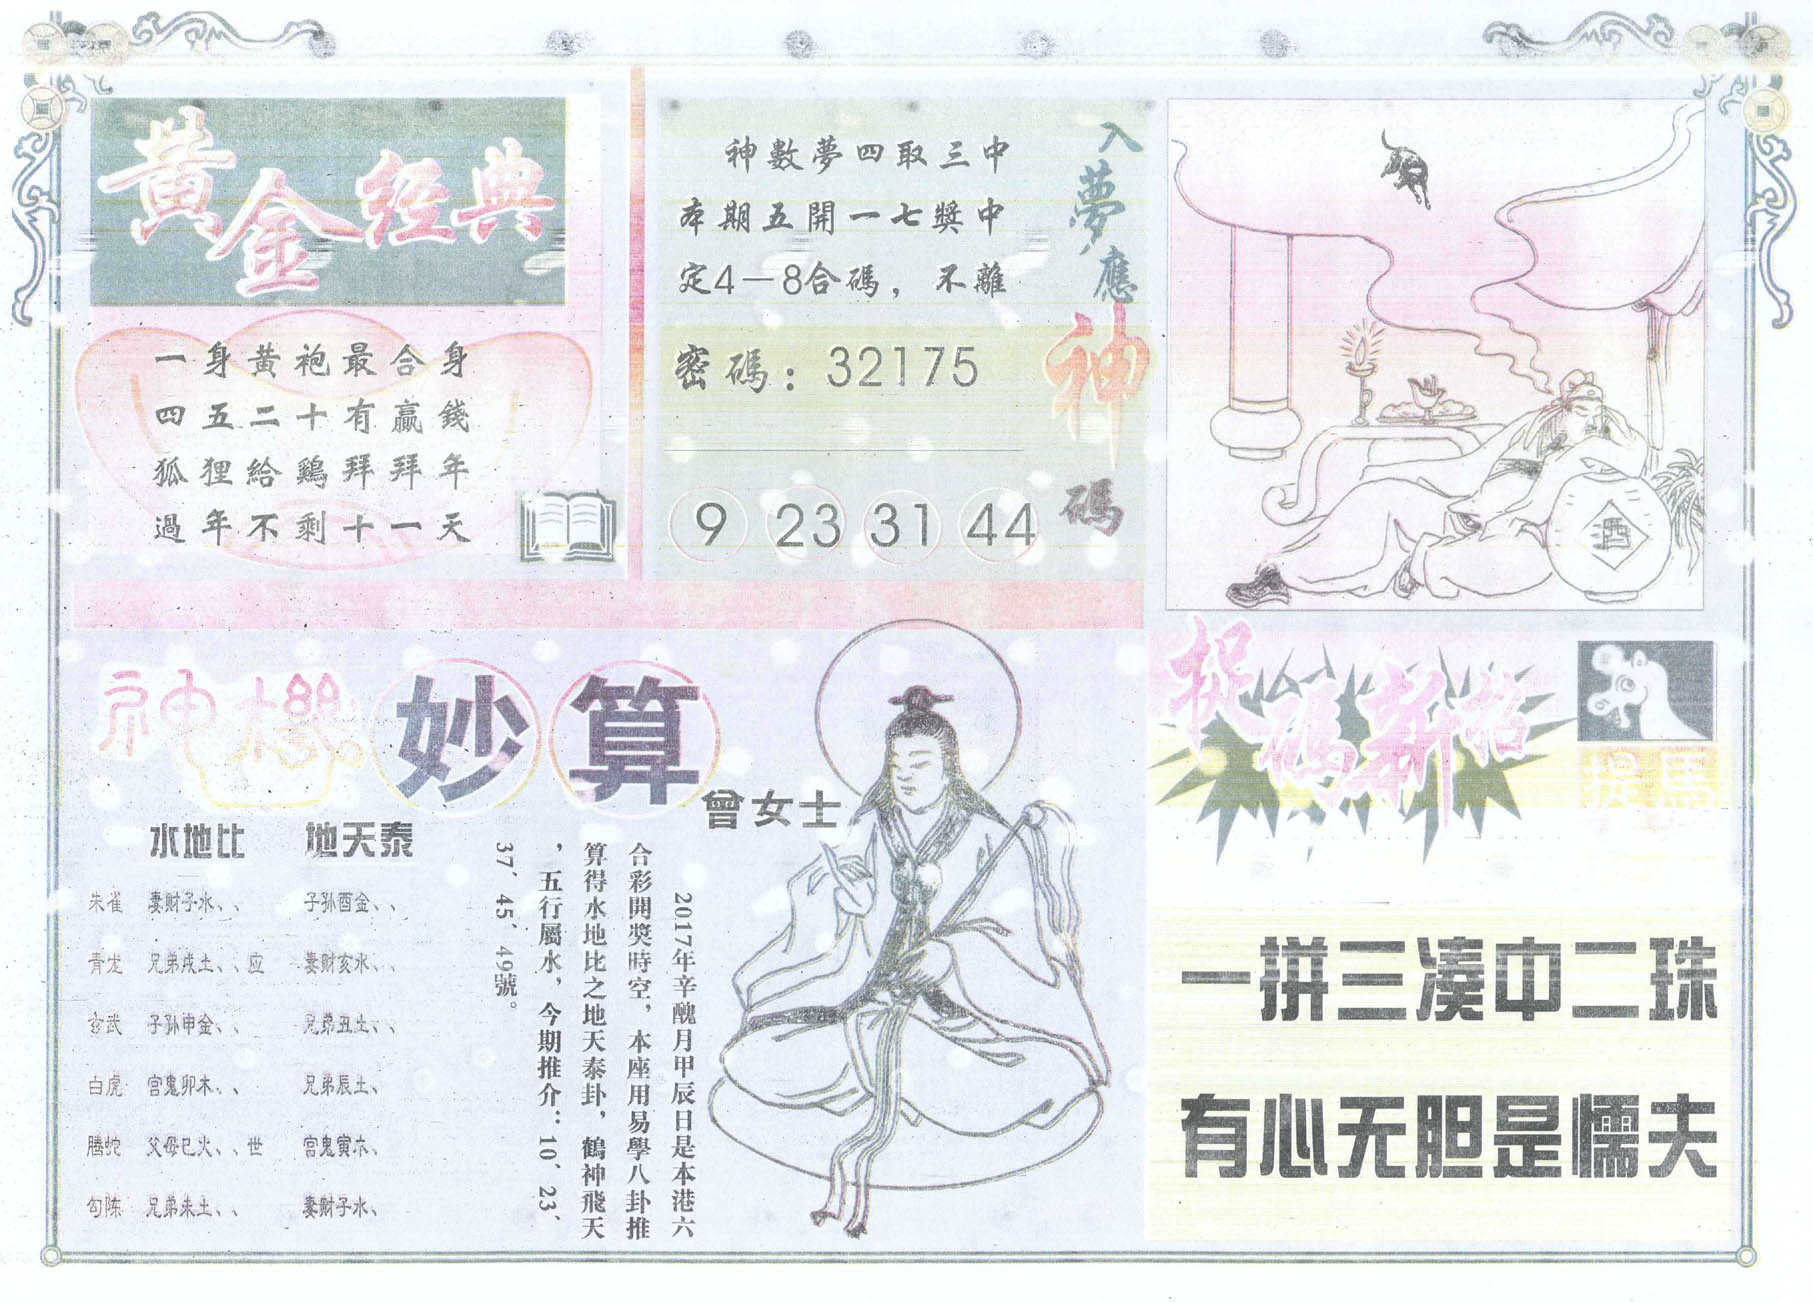 黃金經典
一身黃袍最合身
四五二十有贏錢
狐狸給鷄拜拜年
過年不剩十一天
入夢應神碼
神數夢四取三中
本期五開一七獎中
定4—8合碼，不離
密碼：32175
9 23 31 44
酒
神機妙算
曾女士
水地比 地天泰
朱雀 妻财子水、、 子孙酉金、、
青龙 兄弟戌土、、应 妻财亥水、、
玄武 子孙申金、、 兄弟丑土、、
白虎 宫鬼卯木、、 兄弟辰土、
腾蛇 父母巳火、、世 宫鬼寅木、
勾陈 兄弟未土、、 妻财子水、
2017年辛醜月甲辰日是本港六
合彩開獎時空，本座用易學八卦推
算得水地比之地天泰卦，鶴神飛天
，五行屬水，今期推介：10、23、
37、45、49號。
捉碼新招
提馬
一拼三凑中二珠
有心无胆是懦夫